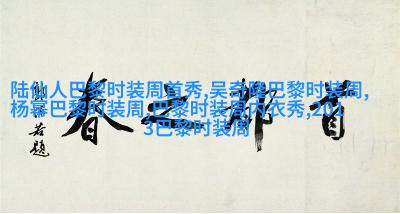 陆仙人巴黎时装周首秀,吴奇隆巴黎时装周,
杨幂巴黎时装周,巴黎时装周内衣秀,201
3巴黎时装周
首都之春
题